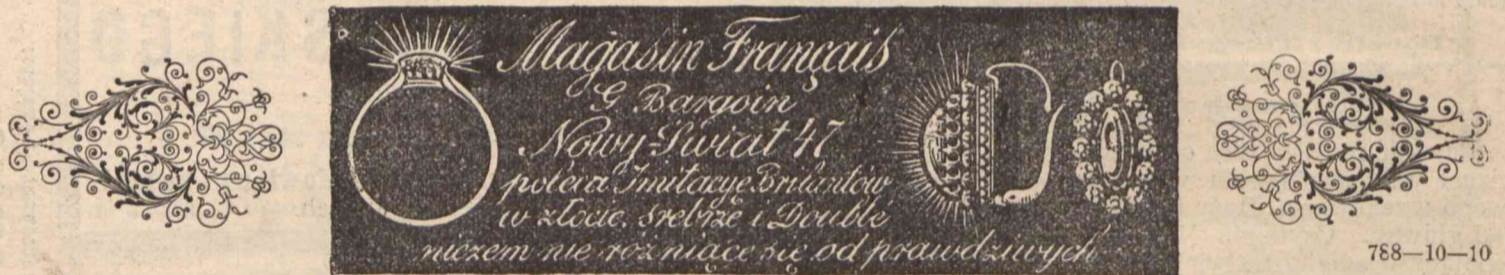 Magasin Français
G Bargoin
Nowy-Świat 47
poleca Imitacye Brilantów
w złocie, srebrze i Double
niczem nie różniące się od prawdziwych
788—10—10